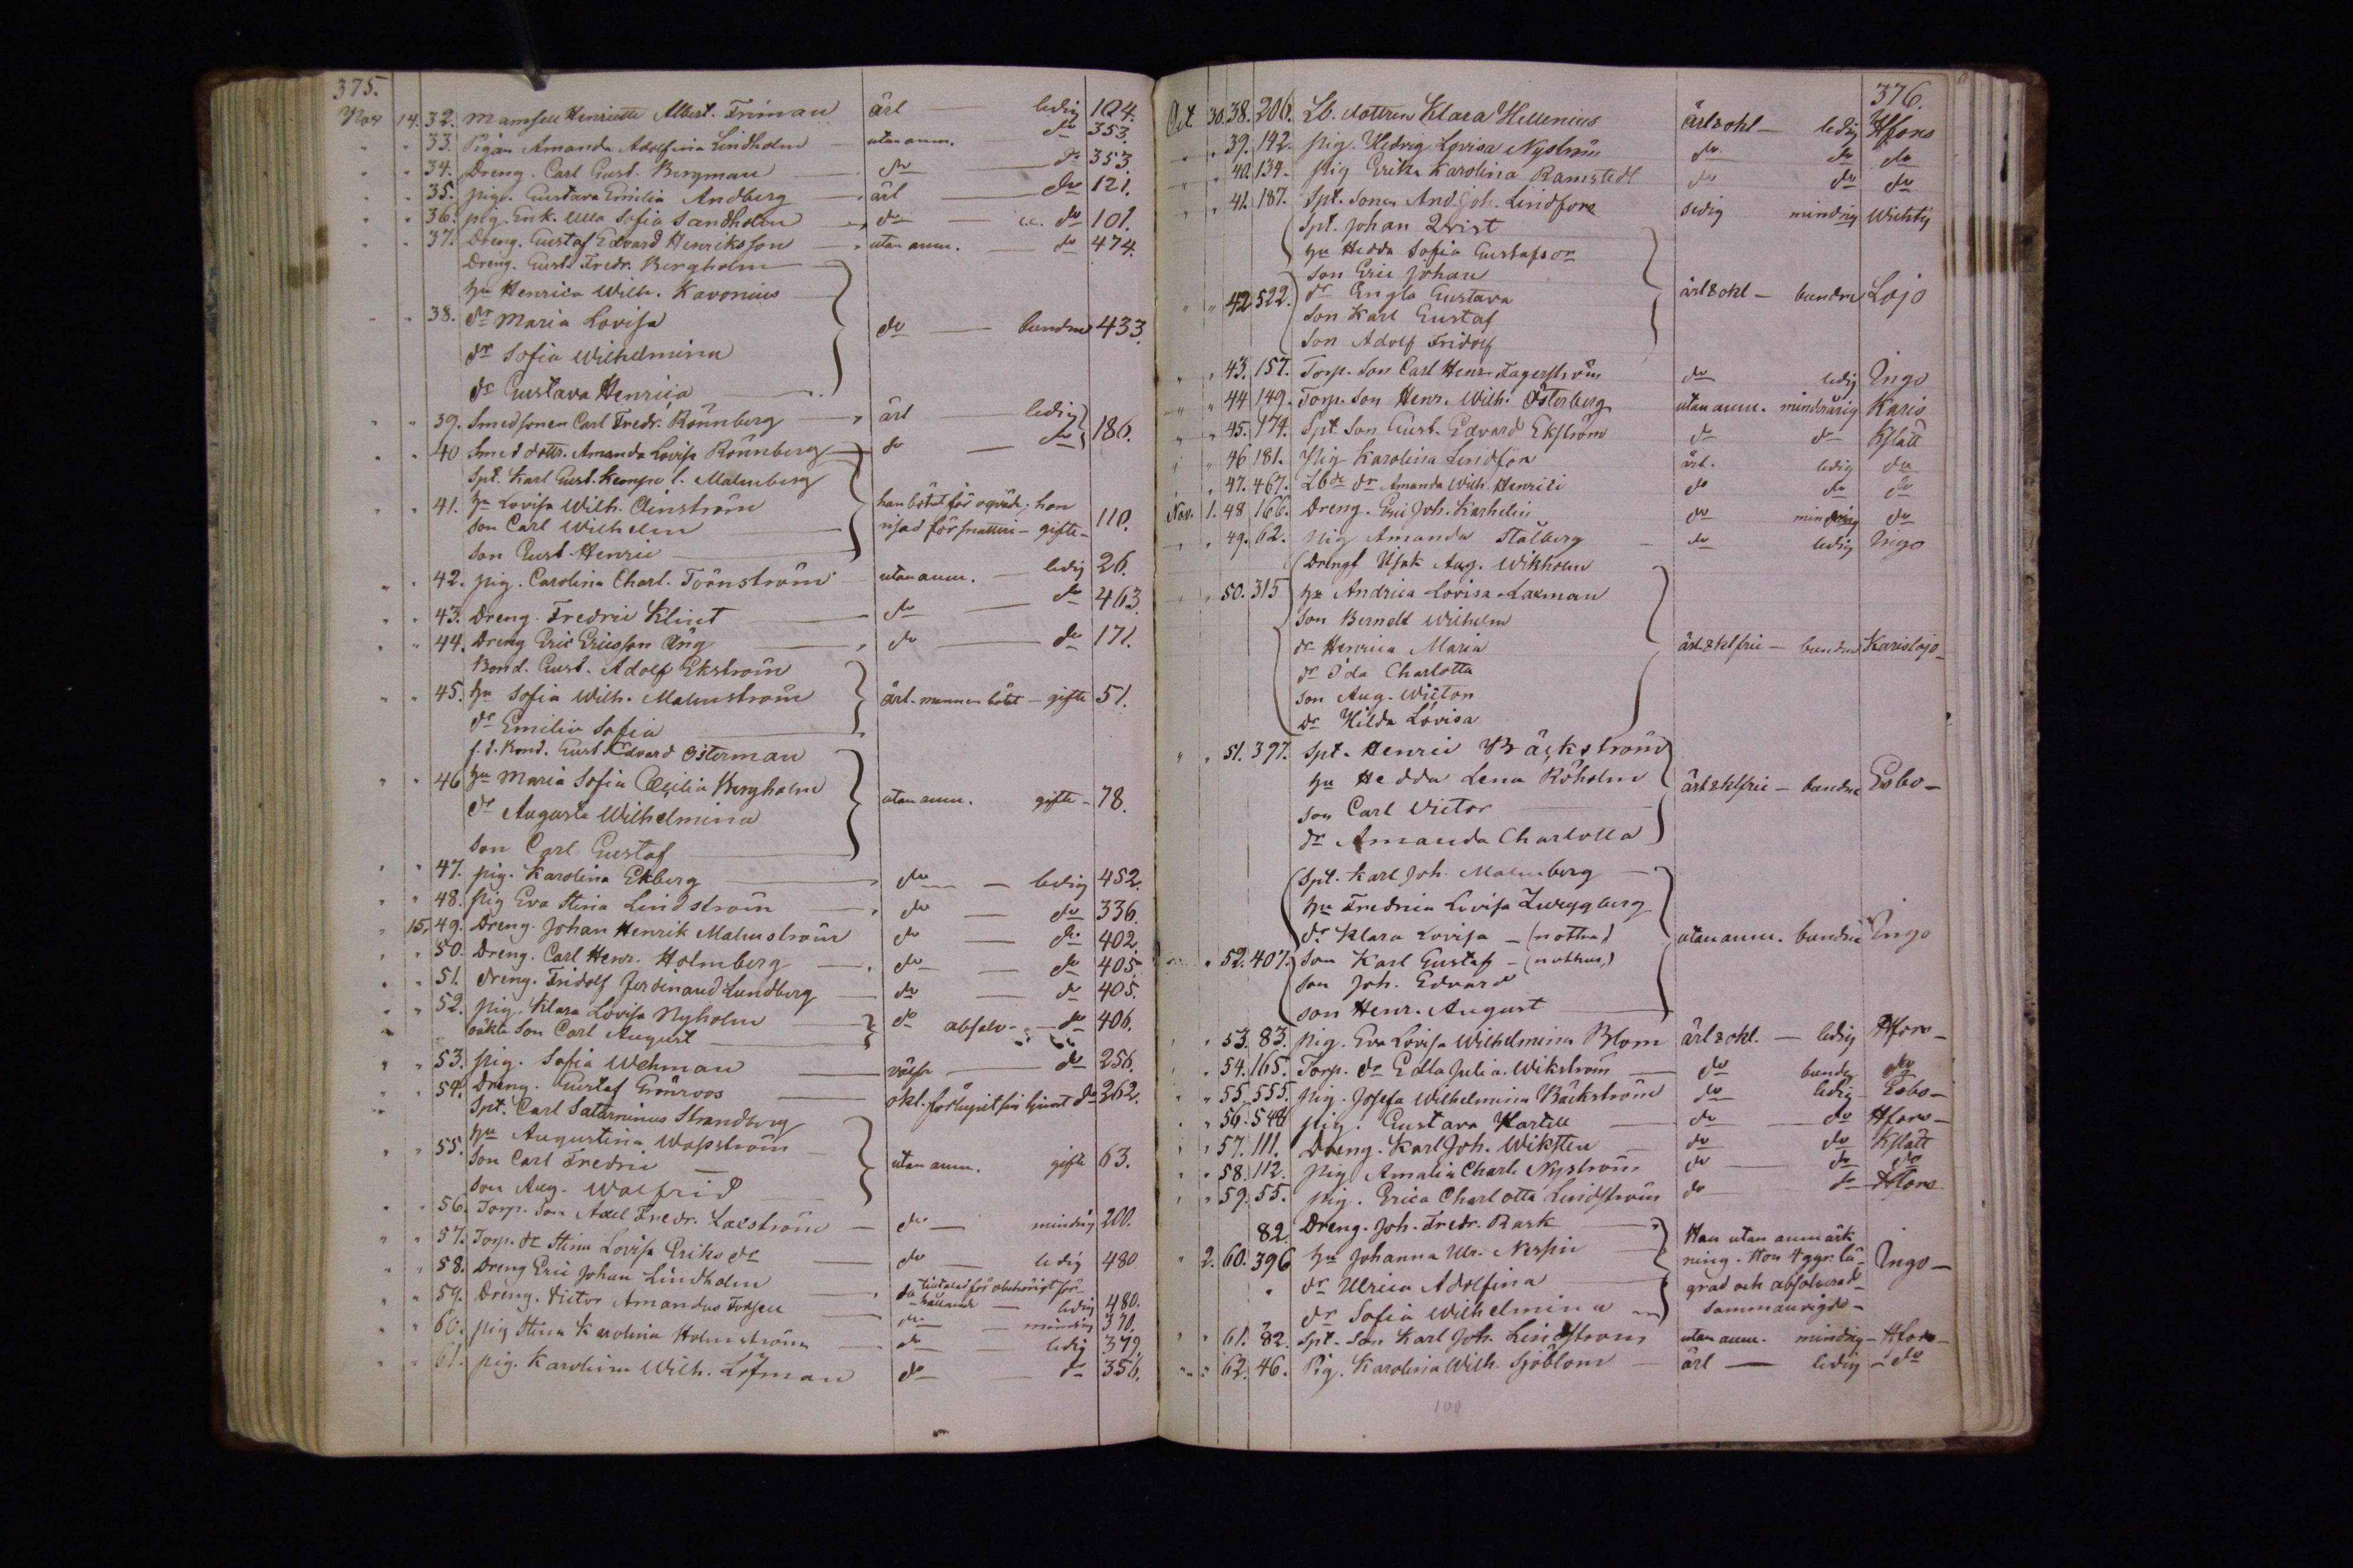 375.
Nov 14. 32. Mamsell Henriette Albert. Friman ärl — ledig 124.
" " 33. Pigan Amanda Adolfina Lindholm — utan anm. do 353.
" " 34. Dreng. Carl Gust. Bergman — do — do 353.
" " 35. pig. Gustava Emilia Andberg — ärl — do 121.
" " 36. pig. Enk. Ulla Sofia Sandholm — do — do 101.
" " 37. Dreng. Gustaf Edvard Henriksson — utan anm. — do 474.
Dreng. Gust. Fredr. Bergholm
hu Henrica Wilh. Kavonius
" " 38. dr Maria Lovisa do — bundne 433.
dr Sofia Wilhelmina
dr Gustava Henrica
" " 39. Smedsonen Carl Fredr. Rönnberg ärl — ledig 186.
" " 40 Smed dottr. Amanda Lovisa Rönnberg do — do
Spt. Karl Gust. Kempe l. Malmberg
" " 41. hu Lovisa Wilh. Öinström han bötat för oqväd; hon
son Carl Wilhelm — gifte — 110.
son Gust. Henric
" " 42. pig. Carolina Charl. Törnström utan anm. — ledig 26.
" " 43. Dreng. Fredric Klint — do — do 463.
" " 44. Dreng Eric Ericsson Äng — do — do 171.
Bond. Gust. Adolf Ekström
" " 45. hu Sofia Wilh. Malmström ärl. mannen bötat — gifte 51.
dr Emilia Sofia
f.d. Bond. Gust. Edvard Österman
" " 46 hu Maria Sofia Cecilia Bergholm
dr Augusta Wilhelmina utan anm. gifte — 78.
son Carl Gustaf
" " 47. pig. Karolina Ekberg — do — ledig 452.
" " 48. pig Eva Stina Lindström — do — do 336.
" 15. 49. Dreng. Johan Henrik Malmström do — do 402.
" " 50. Dreng. Carl Henr. Holmberg — do — do 405.
" " 51. Dreng. Fridolf Ferdinand Lundberg — do — do 405.
" " 52. pig. Klara Lovisa Nyholm — do absolv. — do 406.
oäkta Son Carl August
" " 53. pig. Sofia Wehman — do 256.
" " 54. Dreng. Gustaf Grönroos — okl. do 262.
Spt. Carl Saturninus Strandberg
hu Augustina Wopström
" " 55. Son Carl Fredric utan anm. gifte 63.
son Aug. Walfrid
" " 56. Torp. Son Axel Fredr. Laxström — do — mindrig 200.
" " 57. Torp. dr Stina Lovisa Eriks dr — do — ledig 480
" " 58. Dreng Eric Johan Lindholm — do tilltalad för obehörigt för-
hållande — ledig 480.
" " 59. Dreng. Victor Amandus Forssen — do — mindrig 370.
" " 60. pig Stina Karolina Holmström — do — ledig 379.
" " 61. pig. Karolina Wilh. Löfman do — do 356.
376.
Oct 30. 38. 206. Lb. dottren Klara Hellenius ärl & okl — ledig Hfors
" " 39. 142. pig. Hedvig Lovisa Nyström do do do
" " 40. 134. pig Erika Karolina Ramstedt do do do
" " 41. 187. Spt. Sonen And. Joh. Lindfors sedig mindrig Wichtis
Spt. Johan Qvist
hu Hedda Sofia Gustafson
son Eric Johan
" " 42. 522. dr Engla Gustava ärl & okl — bundne Lojo
Son Karl Gustaf
Son Adolf Fridolf
" " 43. 157. Torp. Son Carl Henr. Fagerström do ledig Ingo
" " 44 149. Torp. Son Henr. Wilh. Österberg utan anm. mindrårig Karis
" " 45. 174. Spt. Son Gust. Edvard Ekström do do Kslätt
" " 46 181. Pig Karolina Lindfors ärl. ledig do
" " 47. 467. Lbde dr Amanda Wilh. Henrici do do do
Nov. 1. 48 166. Dreng. Eric Joh. Karhelin do mindrig do
" " 49. 62. Pig Amanda Stålberg — do ledig Ingo
Drengf Isak Aug. Wikholm
" " 50. 315 hu Andrica Lovisa Laxman
Son Berndt Wilhelm
dr Henrica Maria ärl & kl frie — bundne Karislojo —
dr Ida Charlotta
son Aug. Wicton
dr Hilda Lovisa
" " 51. 397. Spt. Henric Bäckström
hu Hedda Lena Röholm ärl & kl frie — bundne Esbo —
son Carl Victor
dr Amanda Charlotta
Spt. Karl Joh. Malmberg —
hu Fredrica Lovisa Zweygberg
dr Klara Lovisa — (notha) utan anm. bundne Ingo
" " 52. 407. Son Karl Gustaf — (nothus)
son Joh. Edvard
son Henr. August
" " 53. 83. pig. Eva Lovisa Wilhelmina Blom ärl & okl. — ledig Hfors —
" " 54. 165. Torp. dr Edla Julia. Wikström — do bunden do
" " 55. 555. pig. Josefa Wilhelmina Bäckström do ledig Esbo —
" " 56. 548 pig. Gustava Hartell — do do Hfors —
" " 57. 111. Dreng. Karl Joh. Wiksten — do do Kslätt
" " 58. 112. Pig Amalia Charl. Nyström do do do
" " 59. 55. pig. Erica Charlotta Lindström do do Hfors
82. Dreng. Joh. Fredr. Rask — Han utan anmärk
" 2. 60. 396 hu Johanna Ulr. Nespin ning. Hon 4 ggr. lä- Ingo —
dr Ulrica Adolfina — grad och absolverad —
dr Sofia Wilhelmina — sammanvigde —
" " 61. 82. Spt. Son Karl Joh. Lindström utan anm. mindrig — Hfors —
" " 62. 46. Pig. Karolina Wilh. Sjöblom — ärl — ledig — do
100